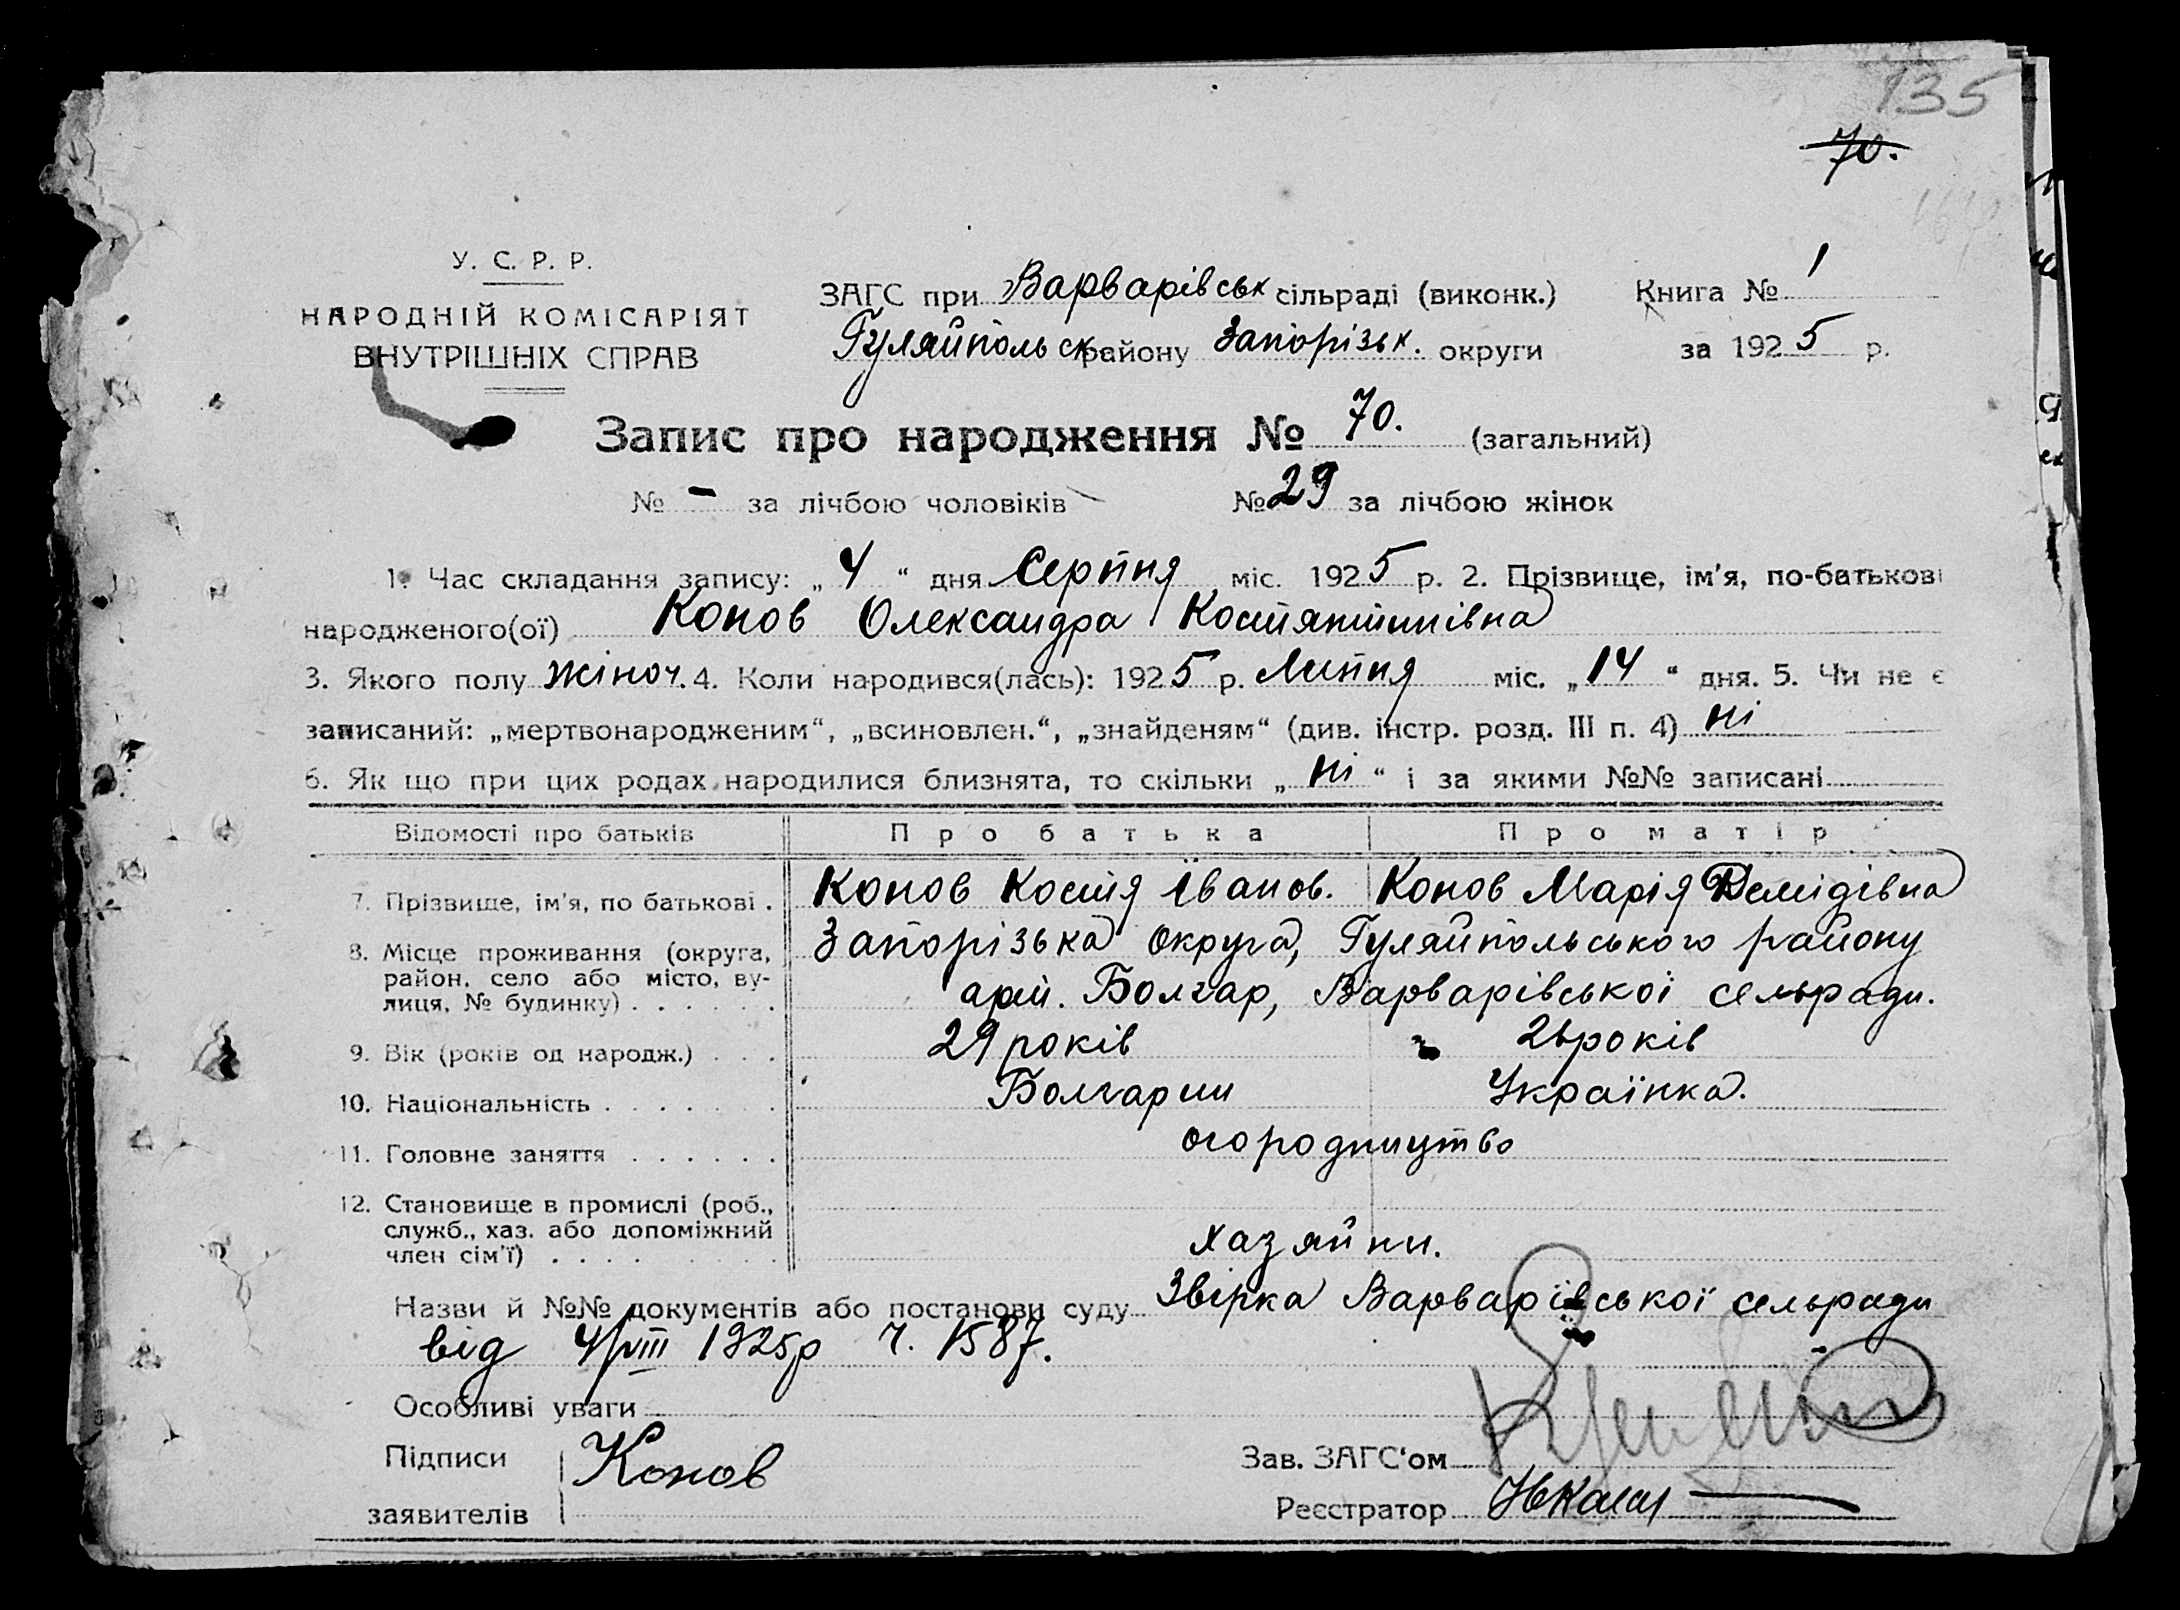 135
70.
У. С. Р. Р.
НАРОДНІЙ КОМІСАРІЯТ
ВНУТРІШНІХ СПРАВ
ЗАГС при Варварівськ сільраді (виконк.)
Гуляйпольськ району Запорізьк. округи
Книга № 1
за 1925 р.
Запис про народження № 70. (загальний)
№ - за лічбою чоловіків № 29 за лічбою жінок
1. Час складання запису: „ 4 “ дня Серпня міс. 1925 р. 2. Прізвище, ім'я, по-батькові
народженого(ої) Конов Олександра Костянтинівна
3. Якого полу жіноч. 4. Коли народився(лась): 1925 р. Липня міс. „ 14 “ дня. 5. Чи не є
записаний: „мертвонародженим“, „всиновлен.“, „знайденям“ (див. інстр. розд. III п. 4) ні
6. Як що при цих родах народилися близнята, то скільки „ ні “ і за якими №№ записані
Відомості про батьків Про батька Про матір
7. Прізвище, ім'я, по батькові . Конов Костя Іванов. Конов Марія Демідівна
8. Місце проживання (округа, Запорізька округа, Гуляйпольського району
район, село або місто, ву-
лиця, № будинку) . . . . . . арт. Болгар, Варварівської сельради.
9. Вік (років од народж.) . . . 29 років 26 років
10. Національність . . . . . . . Болгарин Українка.
11. Головне заняття . . . . . . огородництво
12. Становище в промислі (роб.,
служб., хаз. або допоміжний
член сім'ї) . . . . . . . . хазяйни.
Назви й №№ документів або постанови суду Звірка Варварівської сельради
від 4/VIII 1925р ч. 1587.
Особливі уваги
Підписи Конов
заявителів
Зав. ЗАГС'ом
Реєстратор